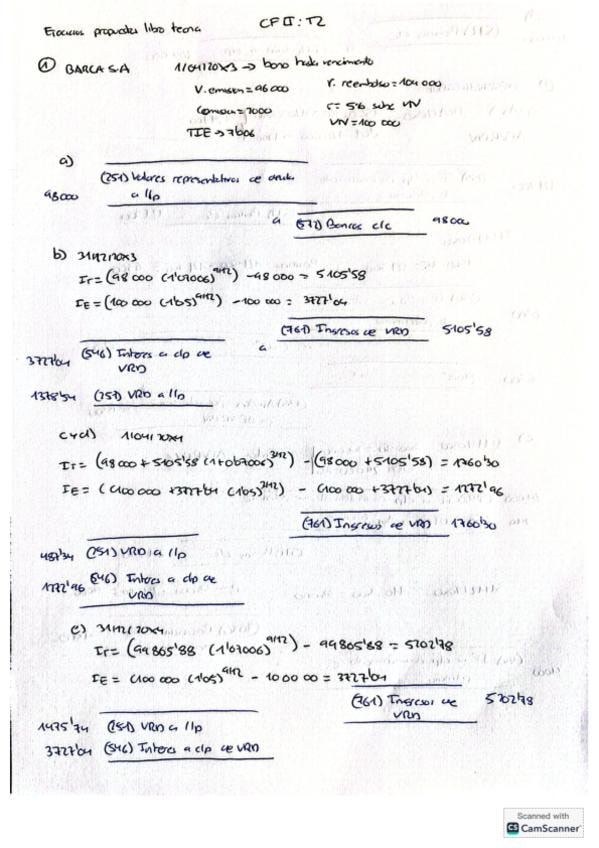 Ejercicios propuestos libro teoría CF II: T2
① BARCA S.A 1/04/20X3 → bono hasta vencimiento
V. emisión = 96 000 V. reembolso = 104 000
Comisión = 2000 C = 5% sobre VN
TIE → 7'006 VN = 100 000
a)
98000 (251) Valores representativos de deuda
a l/p
a (572) Bancos c/c 98000
b) 31/12/20X3
IT = (98 000 (1'07006)^9/12) - 98 000 = 5105'58
IE = (100 000 (1'05)^9/12) - 100 000 = 3727'04
a (761) Ingresos de VRD 5105'58
3727'04 (546) Interes a c/p de
VRD
1378'54 (251) VRD a l/p
c y d) 1/04/20X4
IT = (98 000 + 5105'58 (1+0'07006)^3/12) - (98 000 + 5105'58) = 1760'30
IE = ((100 000 + 3727'04 (1'05)^3/12) - (100 000 + 3727'04) = 1272'96
(761) Ingresos de VRD 1760'30
487'34 (251) VRD a l/p
1272'96 (546) Interes a c/p de
VRD
e) 31/12/20X4
IT = (99 865'88 (1'07006)^9/12) - 99 865'88 = 5202'78
IE = (100 000 (1'05)^9/12 - 100 000 = 3727'04
(761) Ingresos de 5202'78
VRD
1475'74 (251) VRD a l/p
3727'04 (546) Interes a c/p de VRD
Scanned with
CS CamScanner